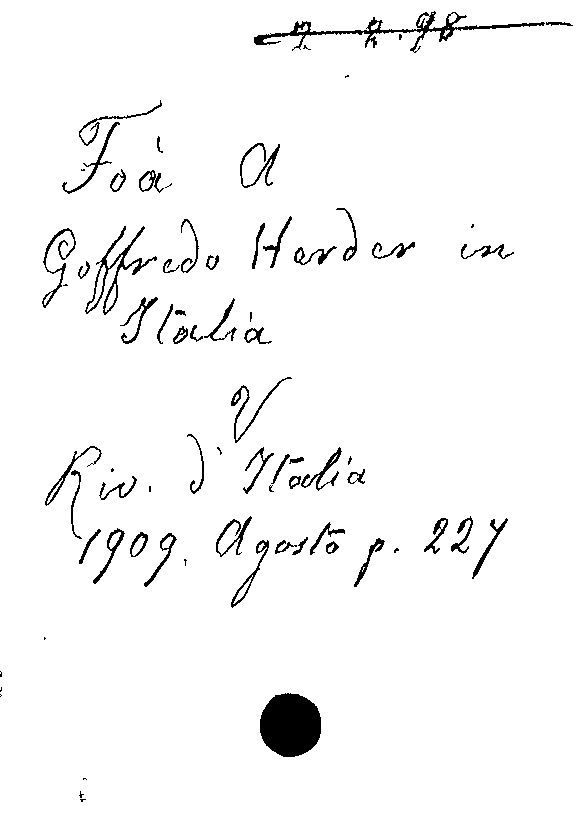 Foà A
Goffredo Herder in
Italia
V
Riv. d'Italia
1909. Agosto p. 227